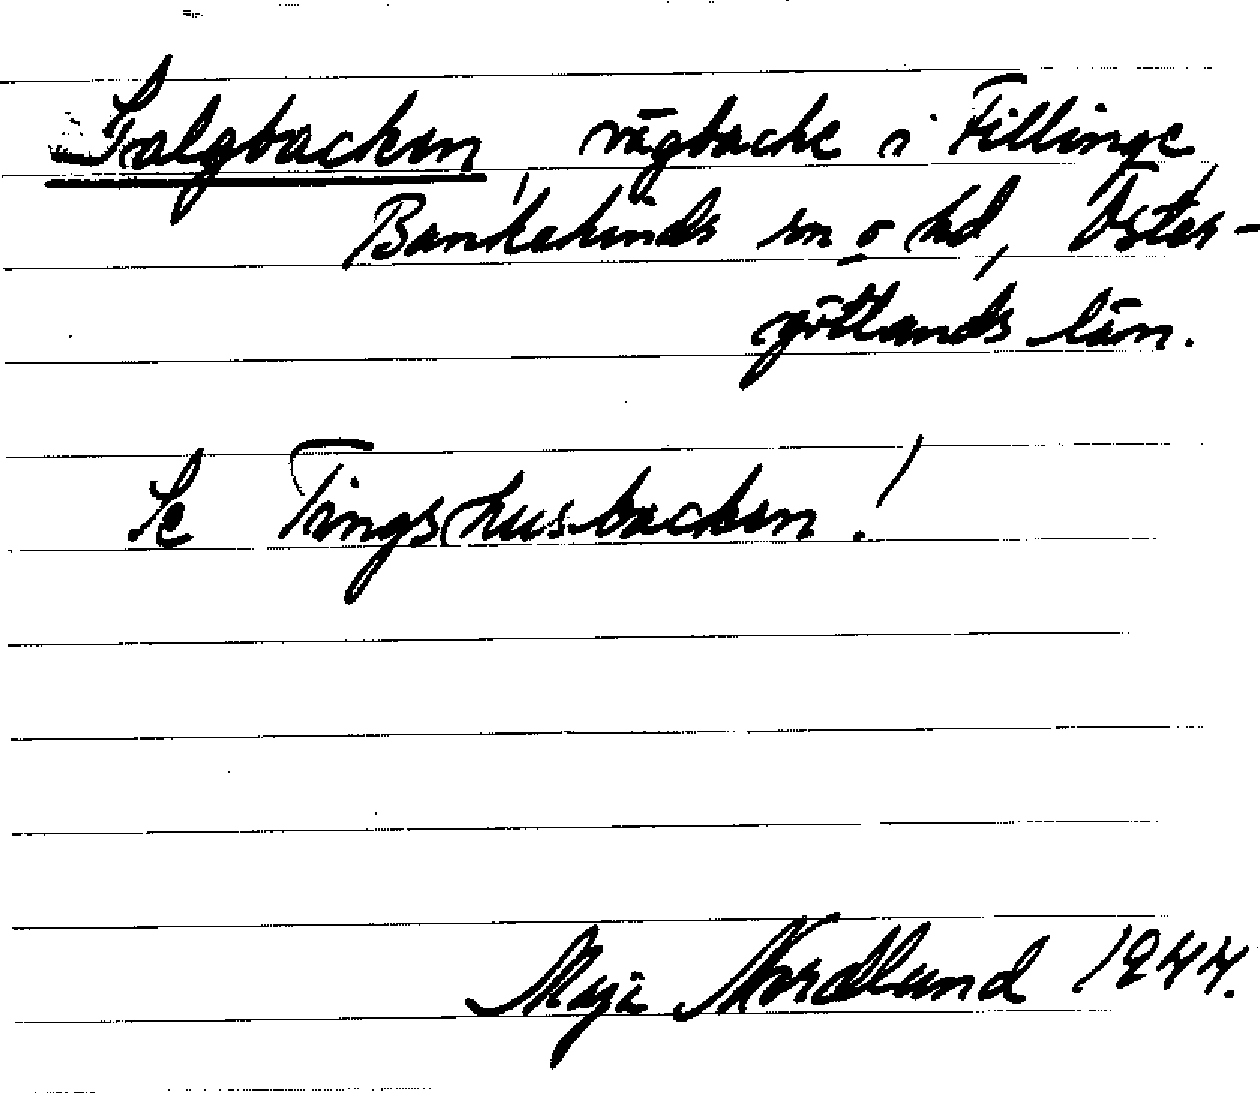 Galgbacken, vägbacke i Fillinge,
Bankekinds sn o hd, Öster-
götlands län.
Se Tingshusbacken!
Maja Nordlund 1944.